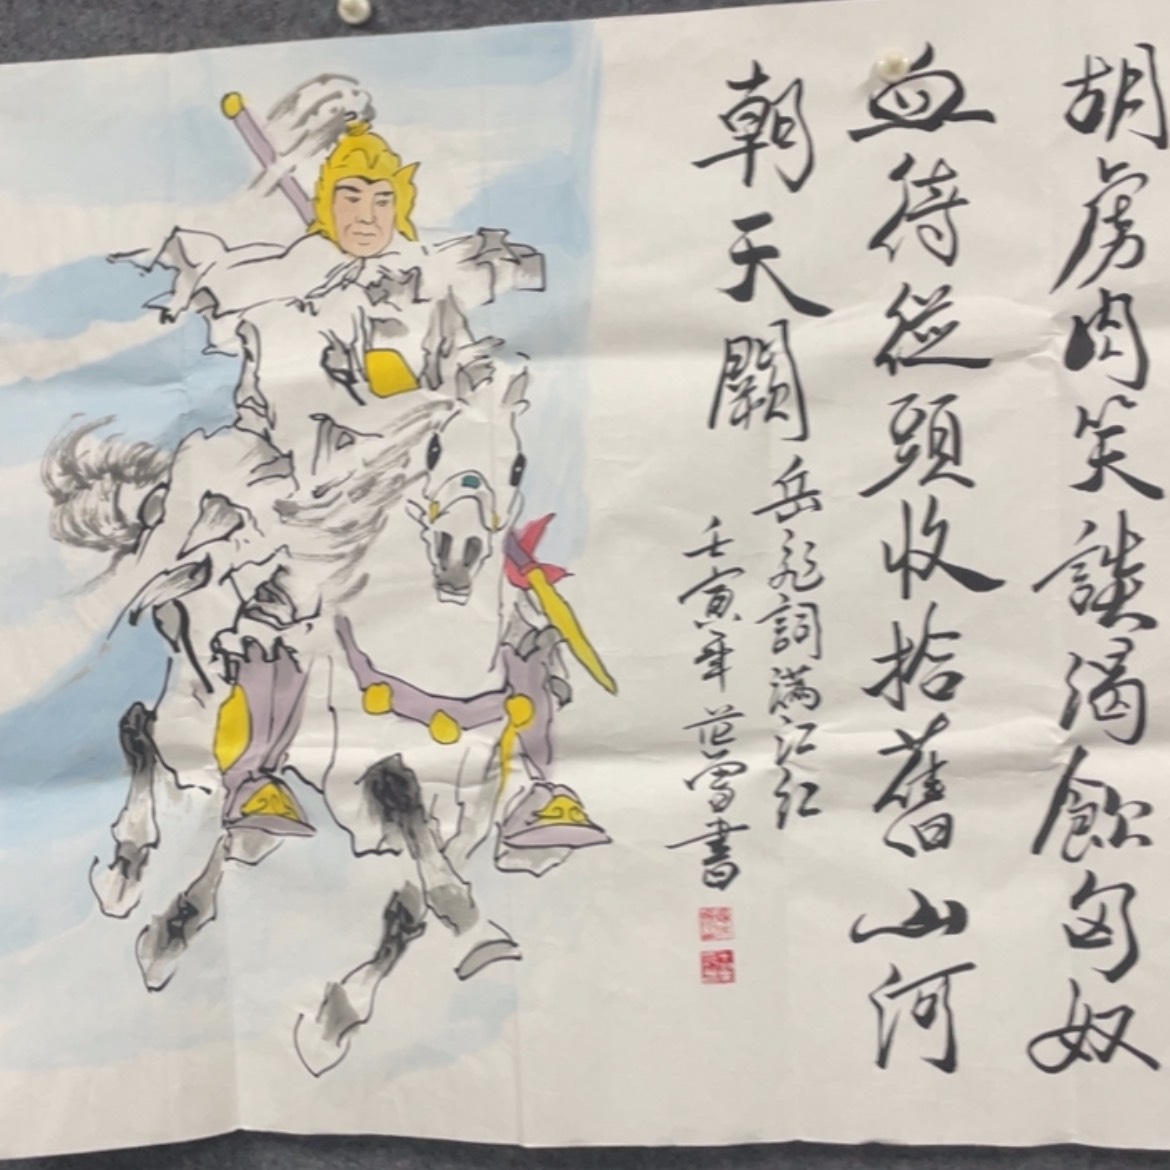 胡虜肉笑談渴飲匈奴
血待從頭收拾舊山河
朝天闕
岳飛詞滿江紅
壬寅年范曾書